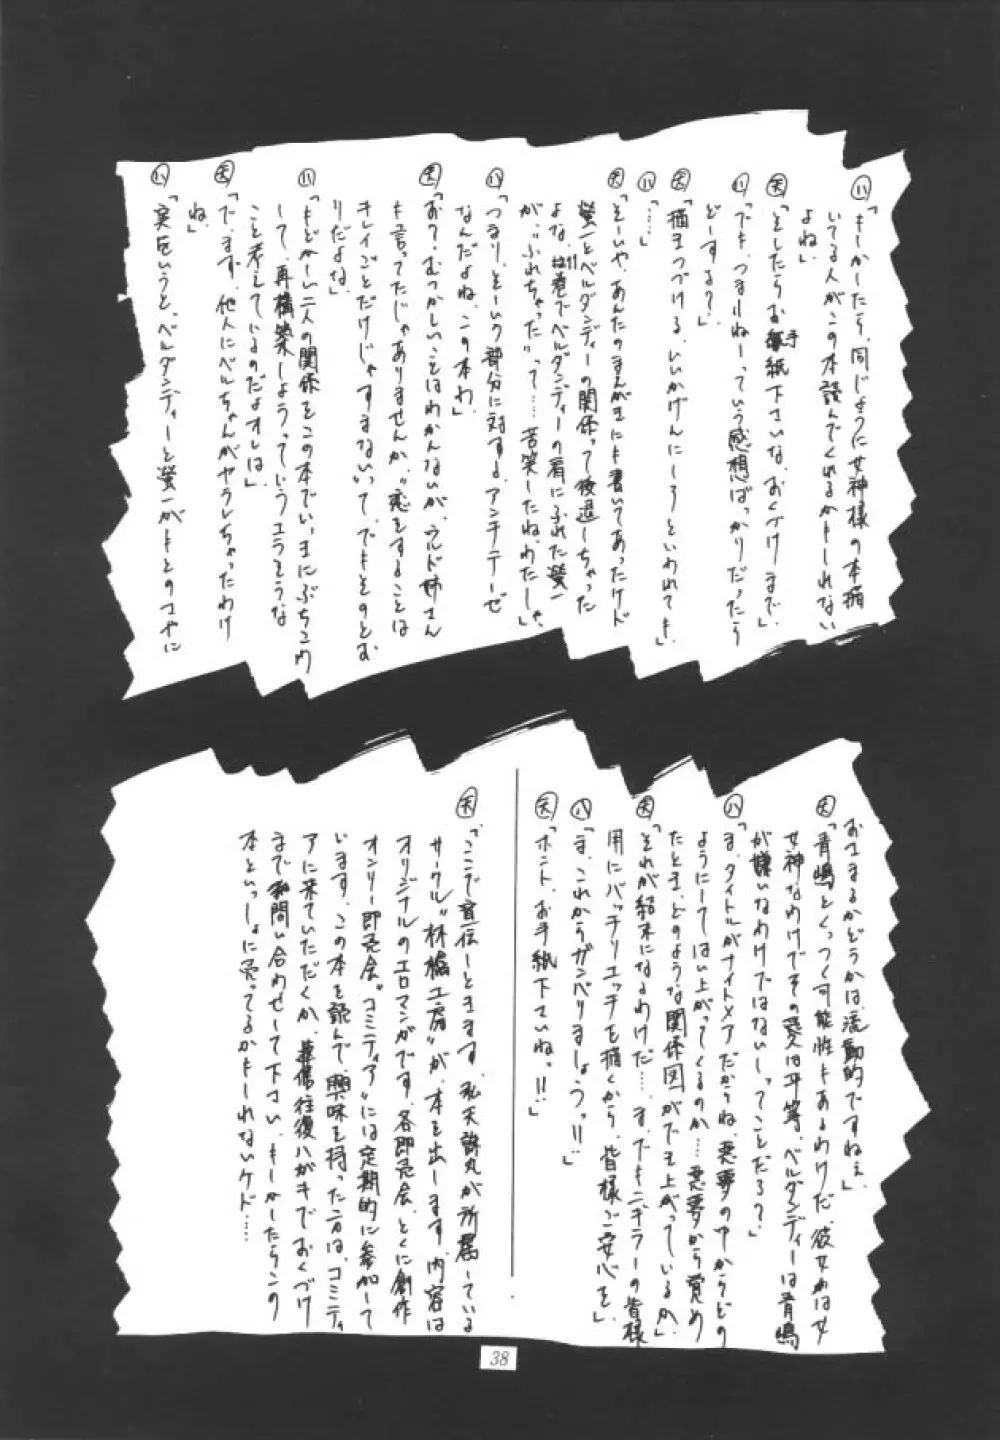 ㈧「もしかしたら、同じように女神様の本描
いてる人がこの本読んでくれるかもしれない
よね。」
㊝「そしたらお手紙下さいな。おくづけまで。」
㈧「でも、つまんねーっていう感想ばっかりだったら
どーする？」
㊝「描きつづける。いいかげんにしろといわれても。」
㈧「……」
㊝「そーいや、あんたのまえがきにも書いてあったけド
螢一とベルダンディーの関係って後退しちゃった
よな。11巻でベルダンディーの肩にふれた螢一
が、“ふれちゃった”って……苦笑したね、わたしゃ。」
㈧「つまり、そーいう部分に対する、アンチテーゼ
なんだよね、この本わ。」
㊝「おって、むつかしいことはわかんないが、ウルド姉さん
も言ってたじゃありませんか、“恋をすることは
キレイごとだけじゃすまない”って、でもそのとお
りだよな。」
㈧「もどかしー二人の関係をこの本でいっきにぶちこわ
して、再構築しようっていうエラそうな
ことを考えているのだよオレは。」
㊝「で、まず、他人にベルちゃんがヤラレちゃったわけ
ね。」
㈧「実をいうと、ベルダンディーと螢一がもとのサヤに
おさまるかどうかは、流動的ですねぇ。」
㊝「青嶋とくっつく可能性もあるわけだ。彼女かは女
女神なわけでその愛は平等、ベルダンディーは青嶋
が嫌いなわけではないしってことだろ？」
㈧「ま、タイトルがナイトメアだからね、悪夢の中からどの
ようにしてはい上がってくるのか…悪夢から覚め
たとき、どのような関係図ができ上がっているか。」
㊝「それが結末になるわけだ…。ま、でもニギラーの皆様
用にバッチリエッチを描くから、皆様ご安心を。」
㈧「ま、これからガンバりましょうっ!!」
㊝「ホント、お手紙下さいねっ!!」
㊝「、ここで宣伝しときます。私天誅丸が所属している
サークル“林檎工房”が、本を出します。内容は
オリジナルのエロマンガです。各即売会、とくに創作
オンリー即売会“コミティア”には定期的に参加して
います。この本を読んで、興味を持った方は、コミティ
アに来ていただくか、葉書往復ハガキでおくづけ
まで問い合わせして下さい。もしかしたらこの
本といっしょに売ってるかもしれないケド……
38